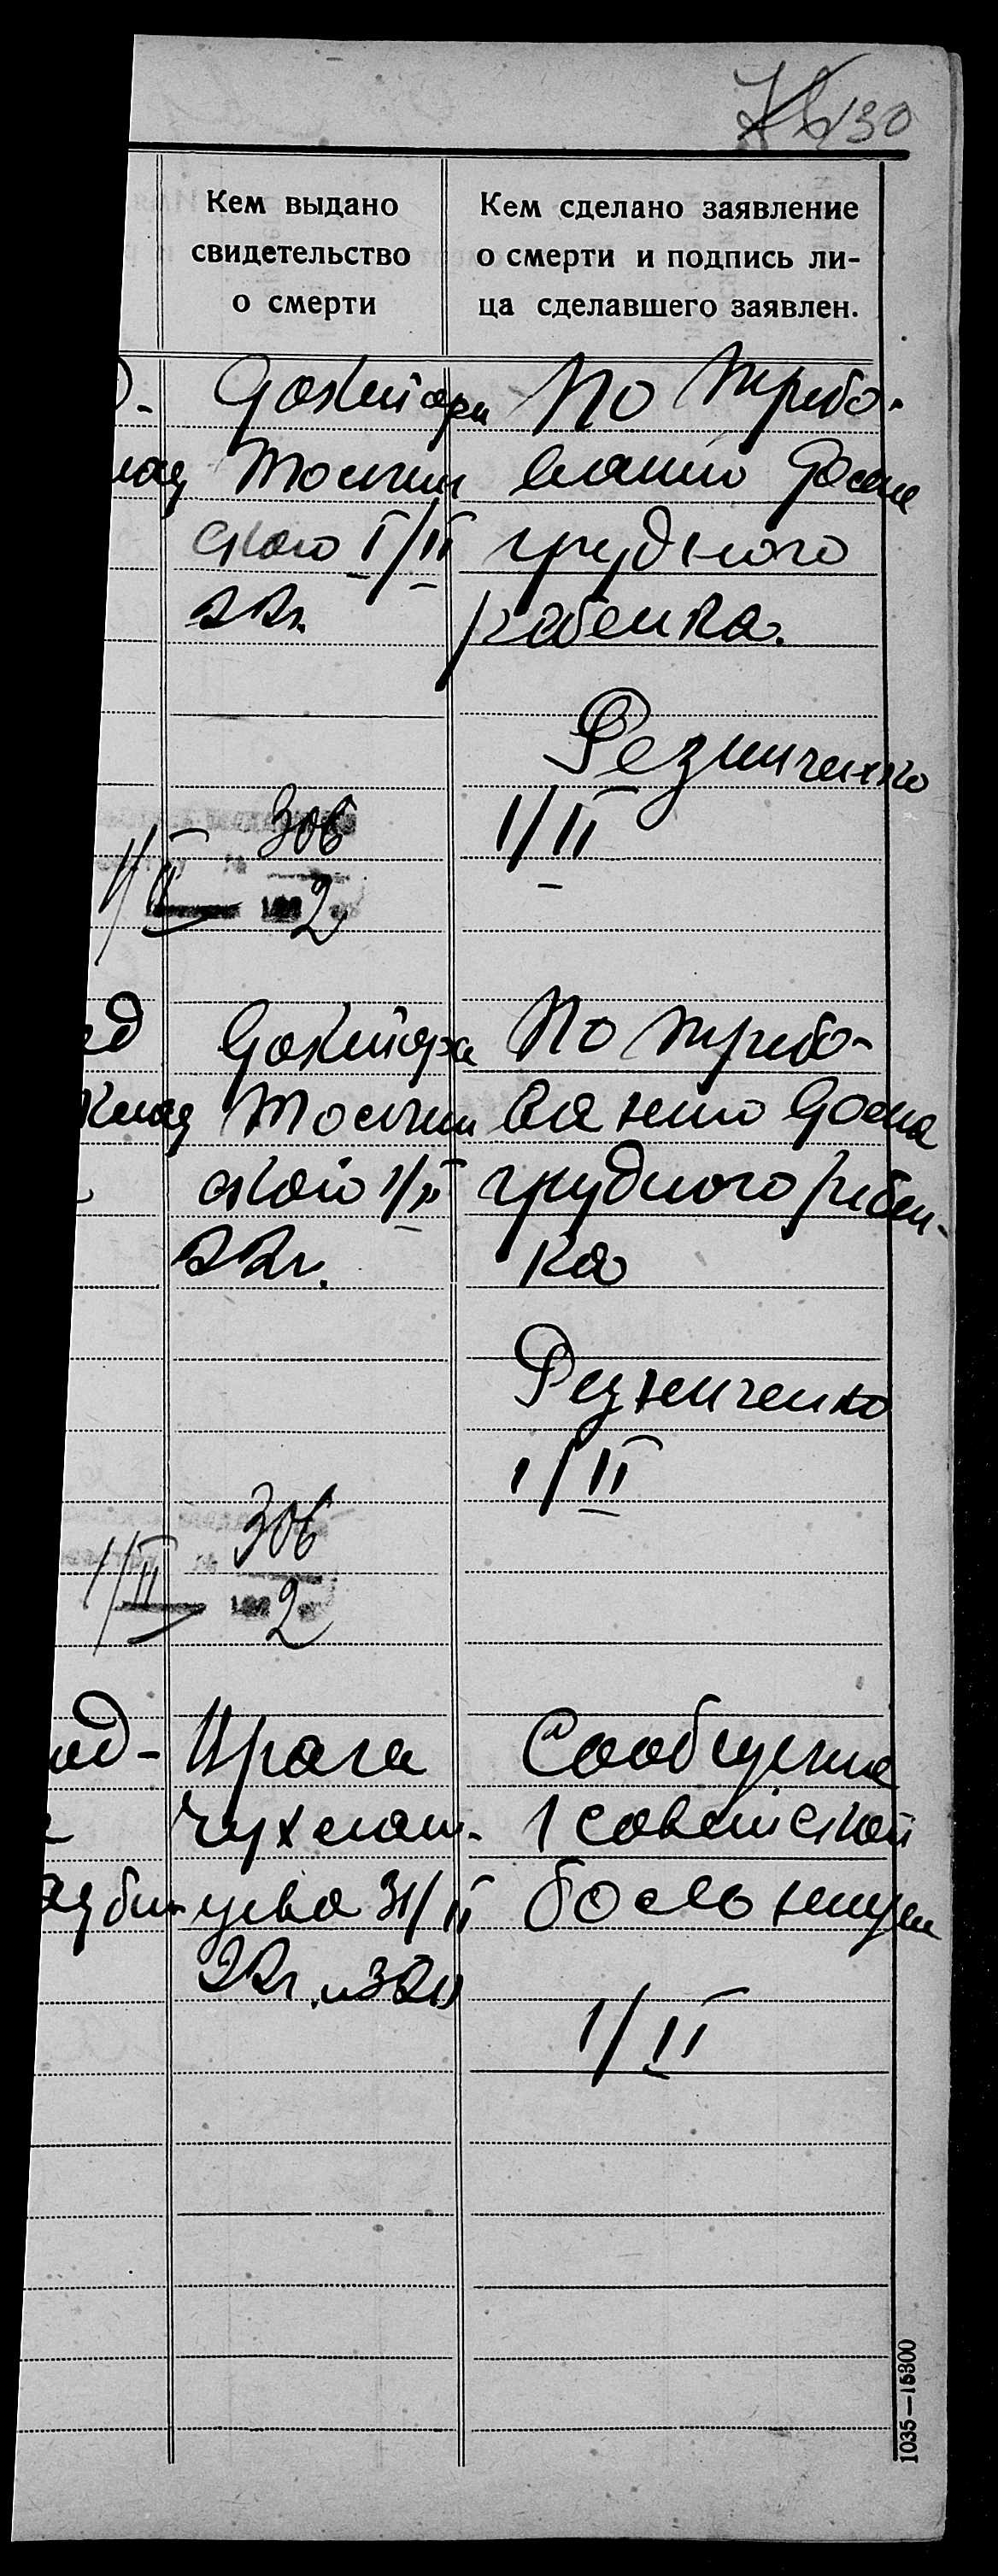 130
Кем выдано
свидетельство
о смерти
Кем сделано заявление
о смерти и подпись ли-
ца сделавшего заявлен.
Доктора
ского I/II
22г.
По требо-
ванию Дома
грудного
ребенка.
Резниченко
I/II
306
2
1/II
Доктора
ского 1/II
22г.
По требо-
ванию Дома
грудного ребен-
ка
Резниченко
1/II
306
2
1/II
од-
Врача
22г. 
Сообщение
1 советской
больницы
1/II
1035—15300